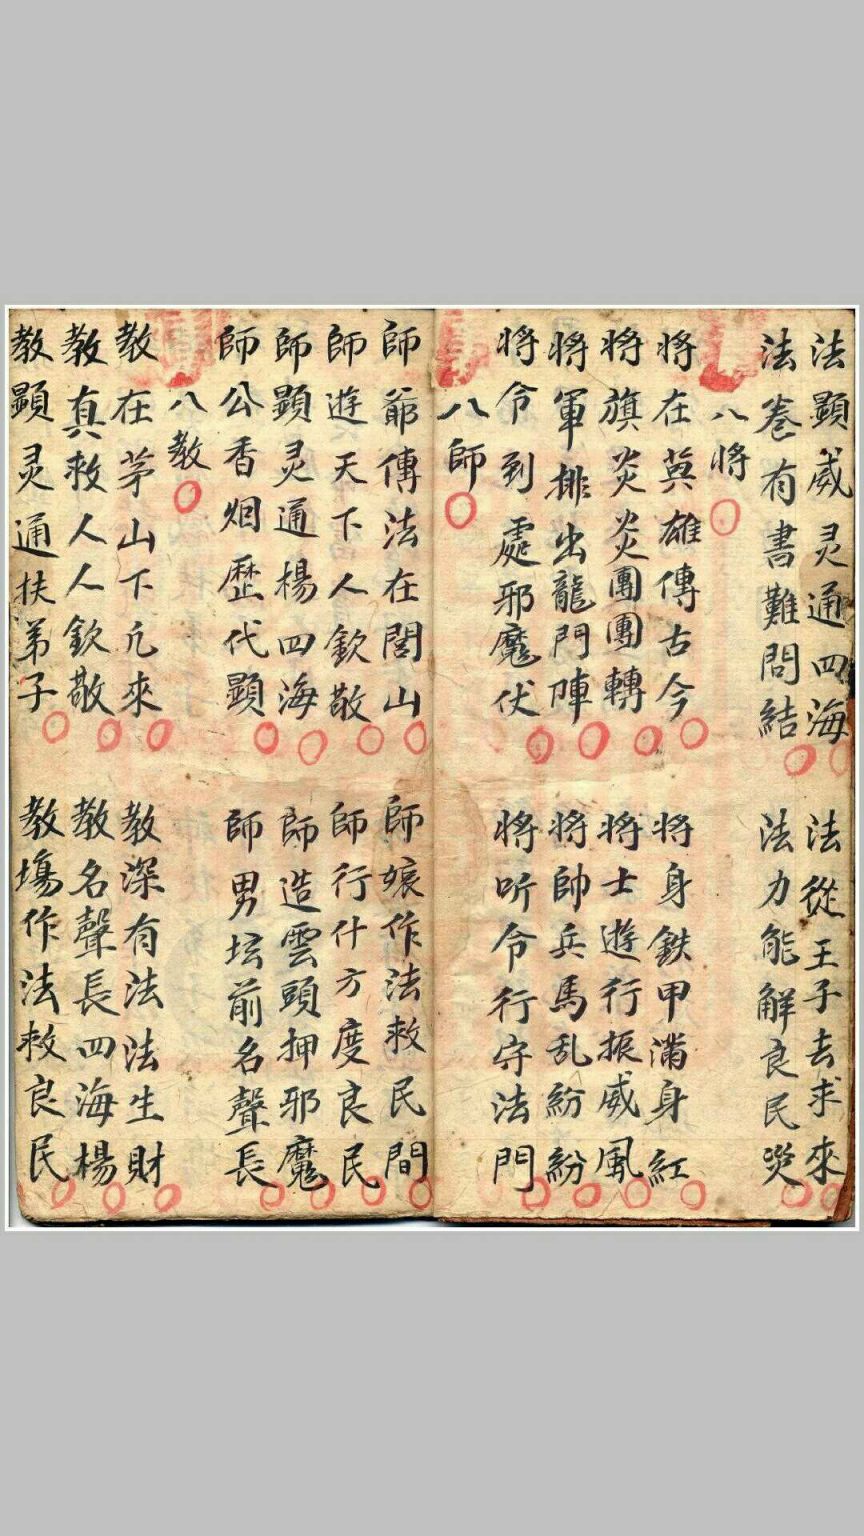 法顯威灵通四海
法從王子去求來
法卷有書難問結
法力能解良民災
八將
將在英雄傳古今
將身鉄甲滿身紅
將旗炎炎團團轉
將士遊行振威風
將軍排出龍門陣
將帥兵馬乱紛紛
將令到處邪魔伏
將听令行守法門
八師
師爺傳法在閭山
師娘作法救民間
師遊天下人欽敬
師行什方度良民
師顯灵通楊四海
師造雲頭押邪魔
師公香烟歷代顯
師男坛前名聲長
八教
教在茅山下凢來
教深有法法生財
教真救人人欽敬
教名聲長四海楊
教顯灵通扶弟子
教場作法救良民